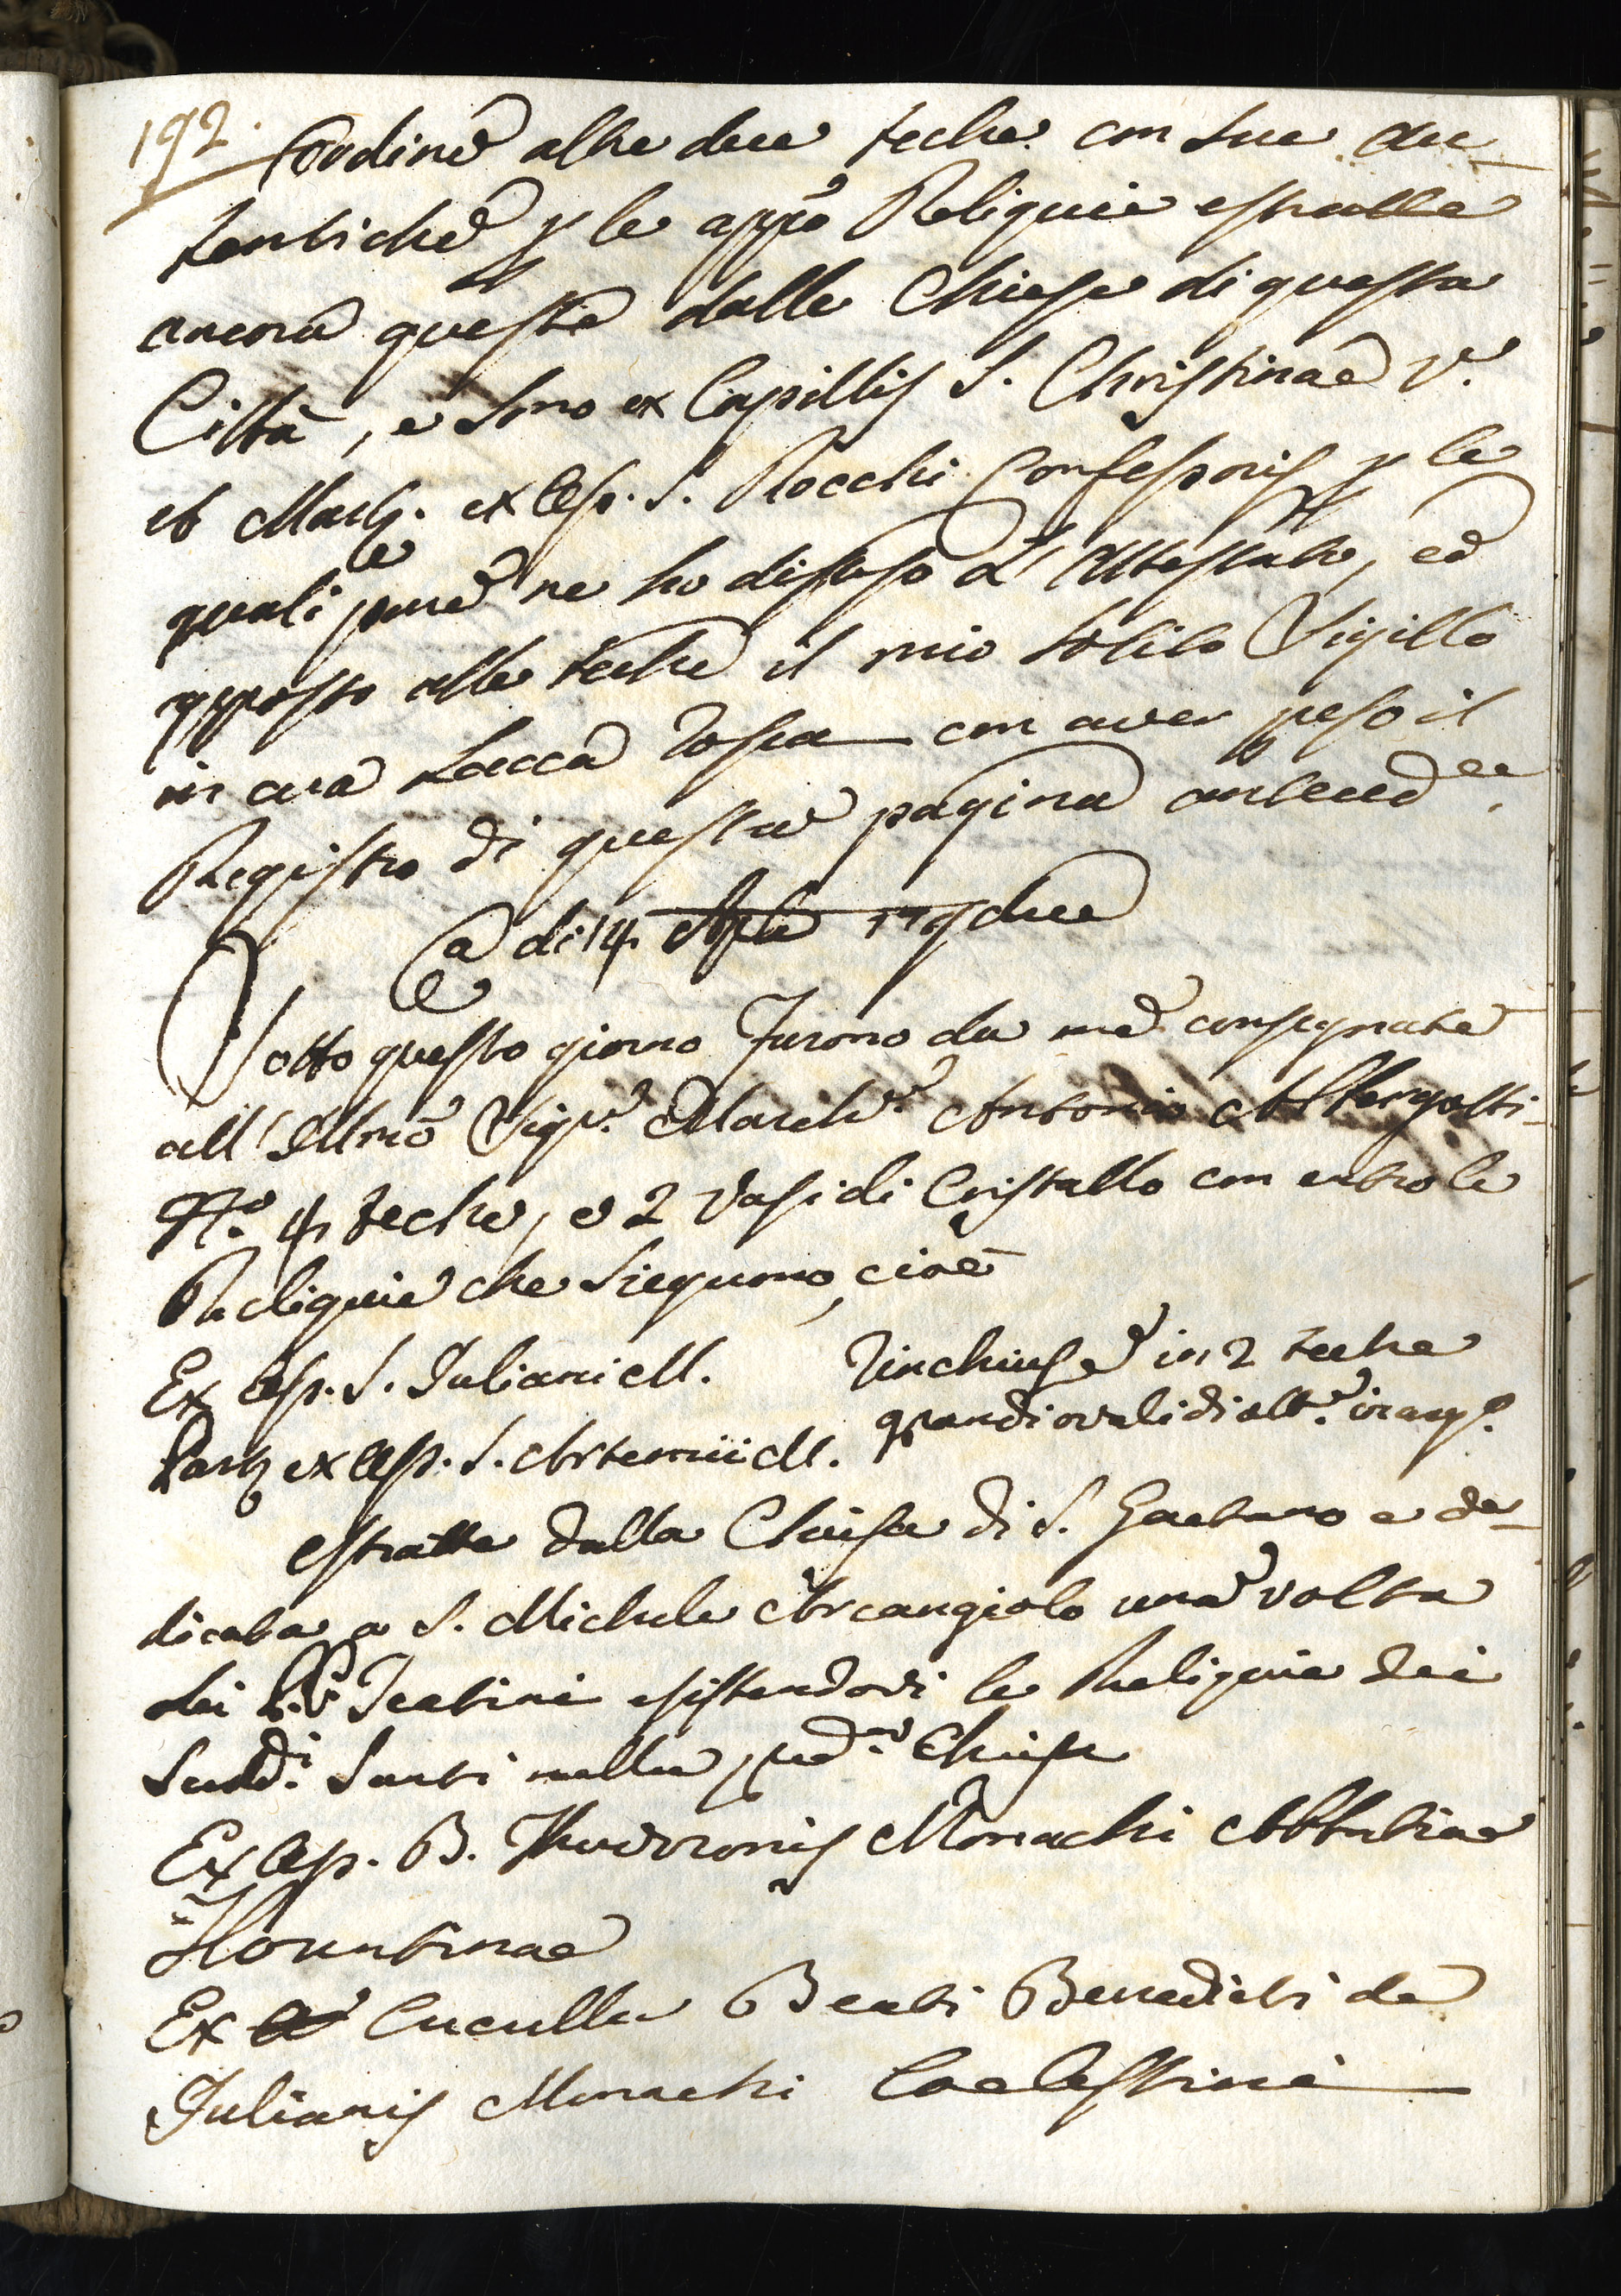 192.
ordine altre due teche con sue au-
tentiche p le app.o Reliquie estratte
ancora queste dalle Chiese di questa
Città, e sono ex Capillis S. Christinae V.
et Mart. ex Oss. S. Rocchi Confessoris p le
quali pure ne ho disteso l'Attestato, ed
apposto alle teche il mio solito Sigillo
in cera Lacca rossa con aver preso il
Registro di questa pagina anteced.te
a di 14. Aple 179due
Sotto questo giorno furono da me consegnate
all'Illmo Sig.r March.e Antonio Albergotti
N.o 4 teche, e 2 Vasi di Cristallo con entro le
Reliquie che sieguono, cioè
Ex Oss. S. Juliani M. rinchiuse in 2 teche
Part ex Oss. S. Artemii M. grandi ovali di ott.e in arg.o
estratte dalla Chiesa di S. Gaetano e de-
dicata a S. Michele Arcangiolo una volta
dei PP. Teatini esistendovi le Reliquie dei
Sudd.i Santi nella pred.a Chiesa
Ex Oss. B. Monachi Abbatiae
Ex Cuculla Beati Benedicti de
Julianis Monachi Coelestini